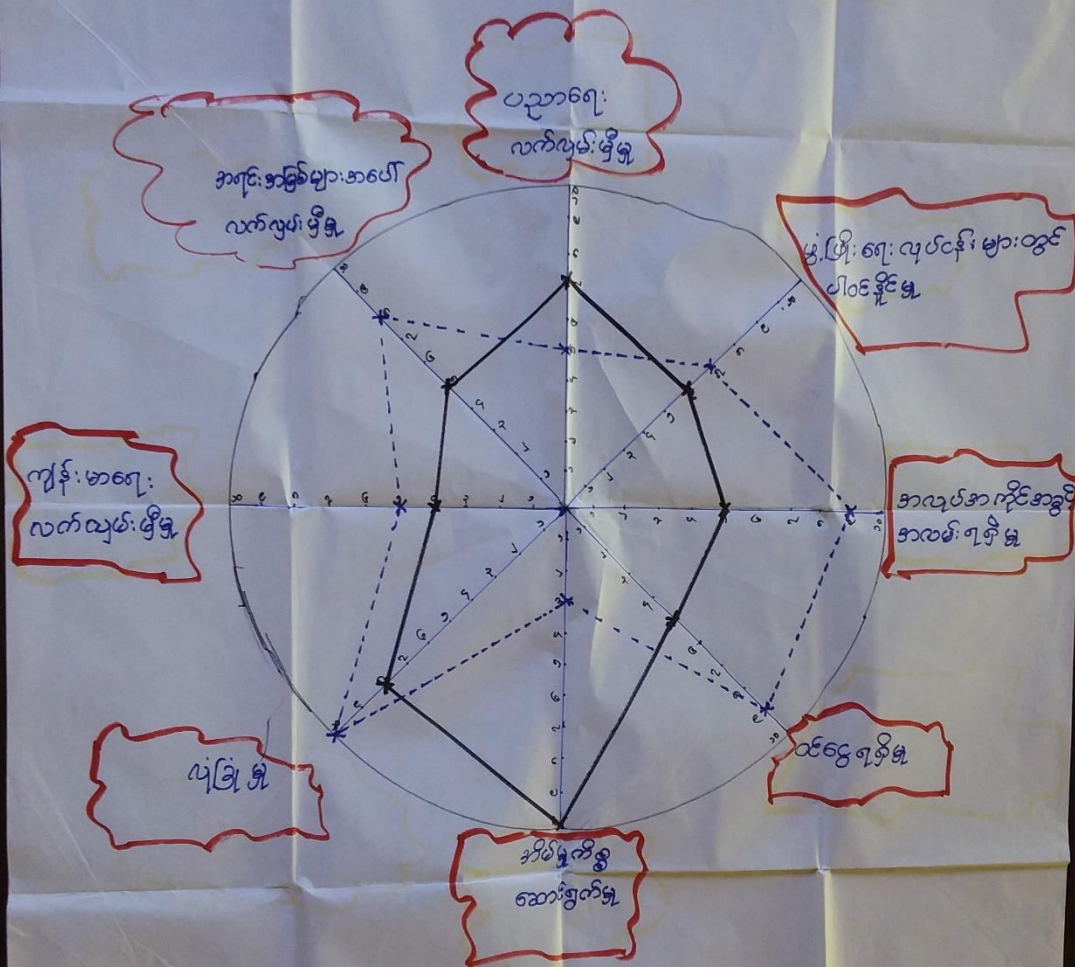 ပညာရေး
လက်လှမ်းမှီမှု
အရင်းအမြစ်များအပေါ်
လက်လှမ်းမှီမှု
ဖွံ့ဖြိုးရေးလုပ်ငန်းများတွင်
ပါဝင်နိုင်မှု
ကျန်းမာရေး
လက်လှမ်းမှီမှု
အလုပ်အကိုင်အခွင့်
အလမ်းရရှိမှု
လုံခြုံမှု
ဝင်ငွေရရှိမှု
အိမ်မှုကိစ္စ
ဆောင်ရွက်မှု